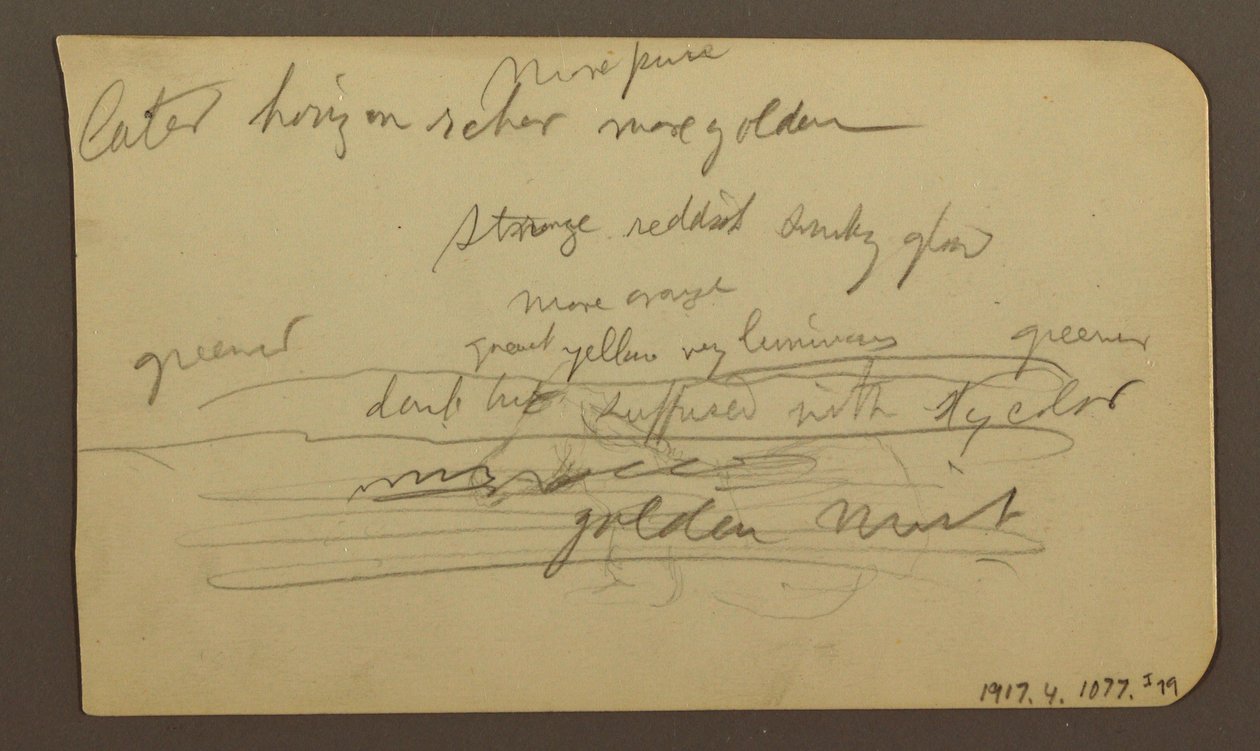 more pure
Later horizon richer more golden
strange reddish smoky glow
more orange
greener
great yellow very luminous
greener
dark but suffused with sky color
golden mist
1917.4.1077.I79